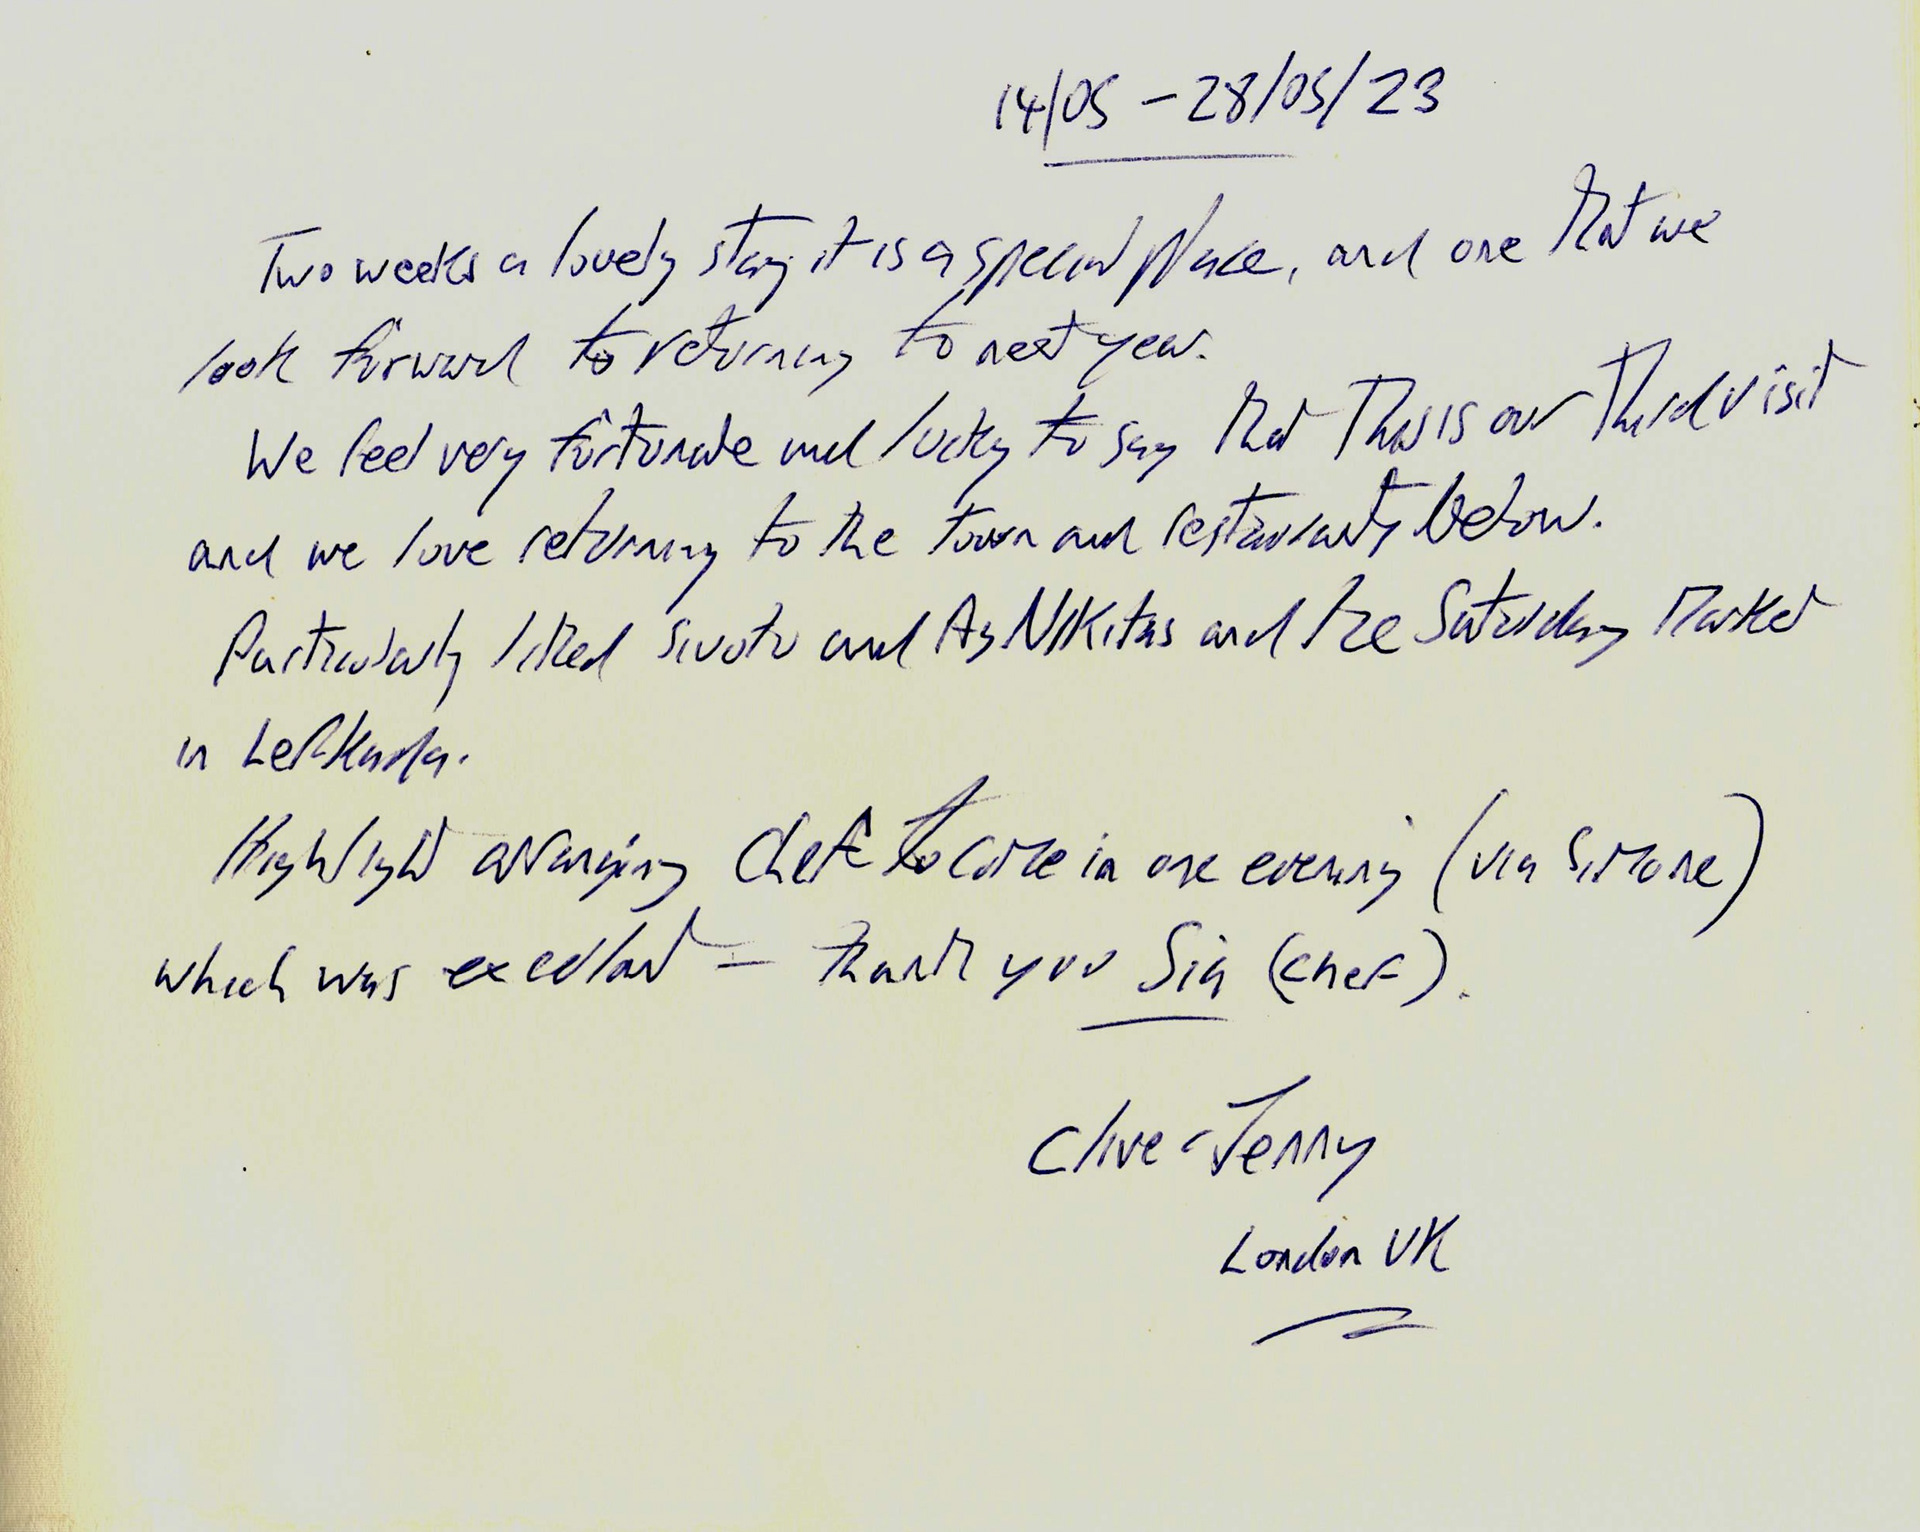 14/05 - 28/05/23
Two weeks a lovely stay it is a special place, and one that we
look forward to returning to next year.
We feel very fortunate and lucky to say that this is our third visit
and we love returning to the town and restaurants below.
Particularly liked Sivota and Ag Nikitas and the Saturday Market
in Lefkada.
Highlight arranging Chef to come in one evening (via Simone)
which was excellent - thank you Sia (chef).
Clive & Jenny
London UK